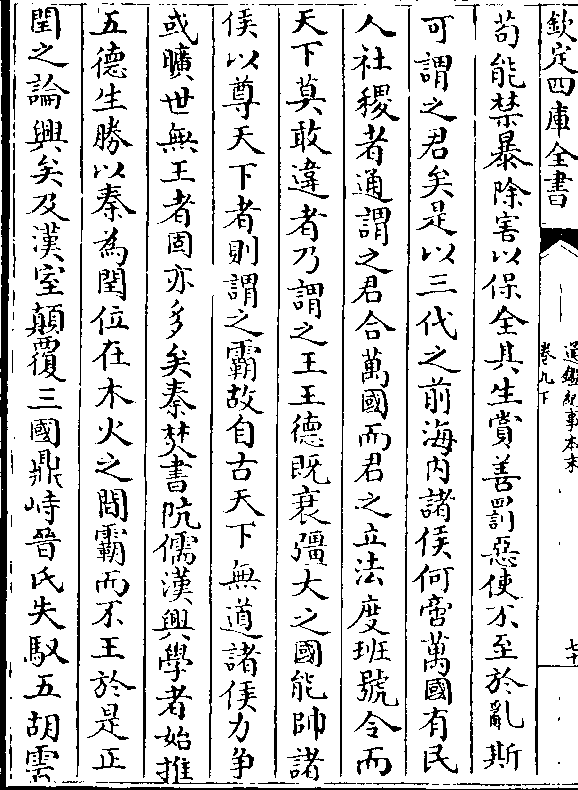 欽定四庫全書
通鑑紀事本末
卷九下
七十
苟能禁暴除害以保全其生賞善罰惡使不至於亂斯
可謂之君矣是以三代之前海内諸侯何啻萬國有民
人社稷者通謂之君合萬國而君之立法度班號令而
天下莫敢違者乃謂之王王德既衰彊大之國能帥諸
侯以尊天下者則謂之霸故自古天下無道諸侯力争
或曠世無王者固亦多矣秦焚書阬儒漢興學者始推
五德生勝以秦為閏位在木火之間霸而不王於是正
閏之論興矣及漢室顛覆三國鼎峙晉氏失馭五胡雲